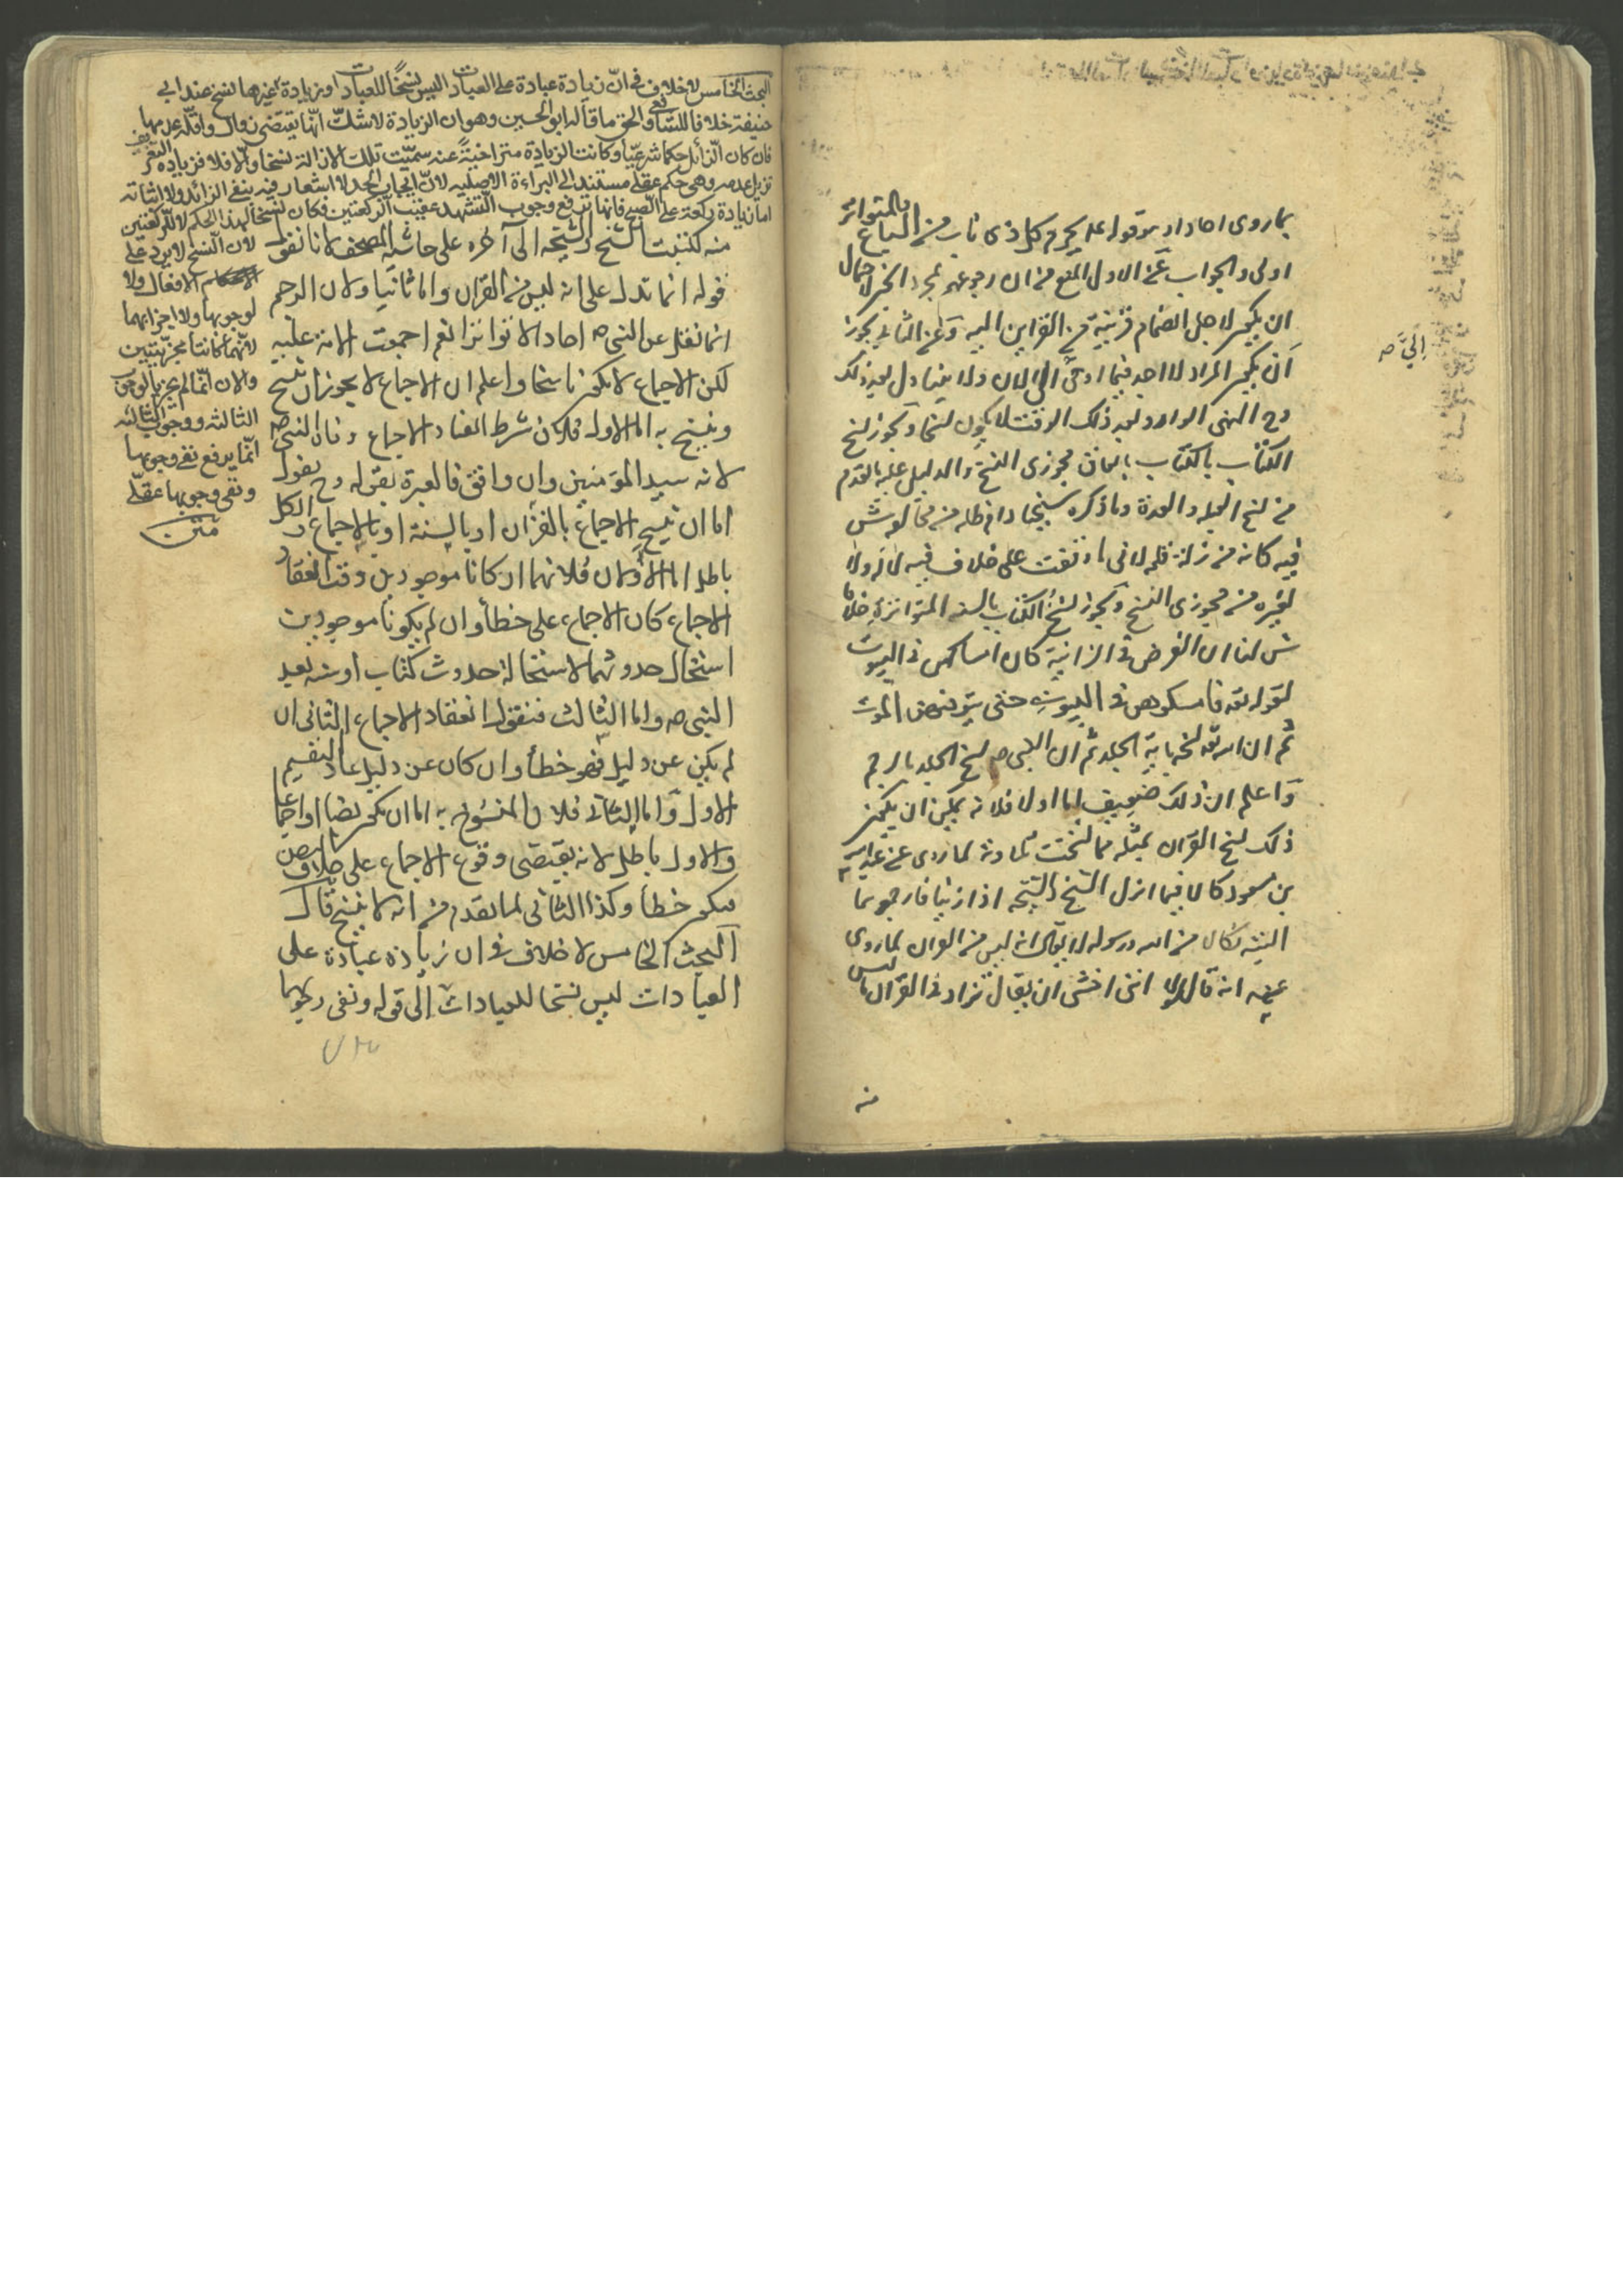 بما روى احادا و هو قوله عليه يحرم كل ذى ناب من السباع فبالمتواتر
اولى والجواب عن الاول المنع من ان رجوعهم بمجرد الخبر لاحتمال
ان يكون لاجل انضمام قرينة من القراين اليه وعن الثانى يجوز
ان يكون المراد لا اجد فيما اوحى الى الان ولا يتناول بعد ذلك
وح النهى الوارد بعد ذلك الوقت لا يكون نسخا ويجوز نسخ
الكتاب بالكتاب باتفاق مجوزى النسخ والدليل عليه ما تقدم
من نسخ العدة وما ذكره
فيه كانه من زلة قلمه لانى ما وقفت على خلاف فيه لا له ولا
لغيره من مجوزى النسخ ويجوز نسخ الكتاب بالسنه المتواترة خلافا
ش لنا ان الفرض فى الزانية كان امساكهن فى البيوت
لقوله تعه فامسكوهن فى البيوت حتى يتوفيهن الموت
ثم ان الله تعه نسخه باية الجلد ثم ان النبى ص نسخ الجلد بالرجم
واعلم ان ذلك ضعيف اما اولا فلانه يمكن ان يكون
ذلك نسخ القران بمثله مما نسخت تلاوته لما روى عن عبد الله
بن مسعود كان فيما انزل الشيخ والشيخه اذا زنيا فارجموهما
البته نكالا من الله ورسوله لا يقال انه ليس من القران لما روى
عنه انه قال لولا اننى اخشى ان يقال تزاد فى القران ما ليس
الىّ ص
منه
البحث الخامس لا خلاف فى انّ زيادة عبادة على العبادات ليس نسخًا للعبادات وزيادة غيرها نسخ عند ابى
حنيفة خلافا للشافعى والحق ما قاله ابو الحسين وهو ان الزيادة لا شكّ انّها يقتضى زوال واقلّه عدمها
فان كان الزائل حكما شرعيّا وكانت الزيادة متراخيةً عنه سمّيت تلك الازالة نسخا والّا فلا فزيادة التغريب
تزيل عدمه وهى حكم عقلى مستند الى البراءة الاصليه لانّ ايجاب الحد لا اشعار فيه بنفى الزائد ولا اثباته
اما زيادة ركعة على الصبح فانها ترفع وجوب التشهد عقيب الركعتين فكان نسخا لهذا الحكم لا للركعتين
لان النسخ لا يرد على
الافعال ولا
لوجوبها ولا اجزائهما
لانّهما كانتا مجزيتين
والان انّما لم يجز بالوجوب
الثالثه ووجوب الثالثه
انّما يرفع نفى وجوبها
ونفى وجوبها عقلى
متن
منه لكتبت الشيخ والشيخه الى آخره على حاشيه المصحف لانا نقول
قوله انما تدل على انه ليس من القران واما ثانيا ولان الرجم
انما نقل عن النبى ص احادا لا تواترا نعم اجمعت الامة عليه
لكن الاجماع لا يكون ناسخا واعلم ان الاجماع لا يجوز ان ينسخ
وينسخ به اما الاول فلان شرط انعقاد الاجماع وفات النبى ص
لانه سيد المؤمنين وان وافق فالعبرة بقوله وح يقول
اما ان ينسخ الاجماع بالقران او بالسنة او بالاجماع والكل
باطل اما الاولان فلانهما ان كانا موجودين وقت انعقاد
الاجماع كان الاجماع على خطأ وان لم يكونا موجودين
استحال حدوثهما لاستحالة حدوث كتاب او سنه بعد
النبى ص واما الثالث فنقول انعقاد الاجماع الثانى ان
لم يكن عن دليل فهو خطأ وان كان عن دليل عاد التقسيم
الاول واما الثانى فلان المنسوخ به اما ان يكون نصا او اجماعا
والاول باطل لانه يقتضى وقوع الاجماع على خلاف النص
فيكون خطأ وكذا الثانى لما تقدم من انه لا ينسخ قال
البحث الخامس لا خلاف فى ان زيادة عبادة على
العبادات ليس نسخا للعبادات الى قوله ونفى وجوبها